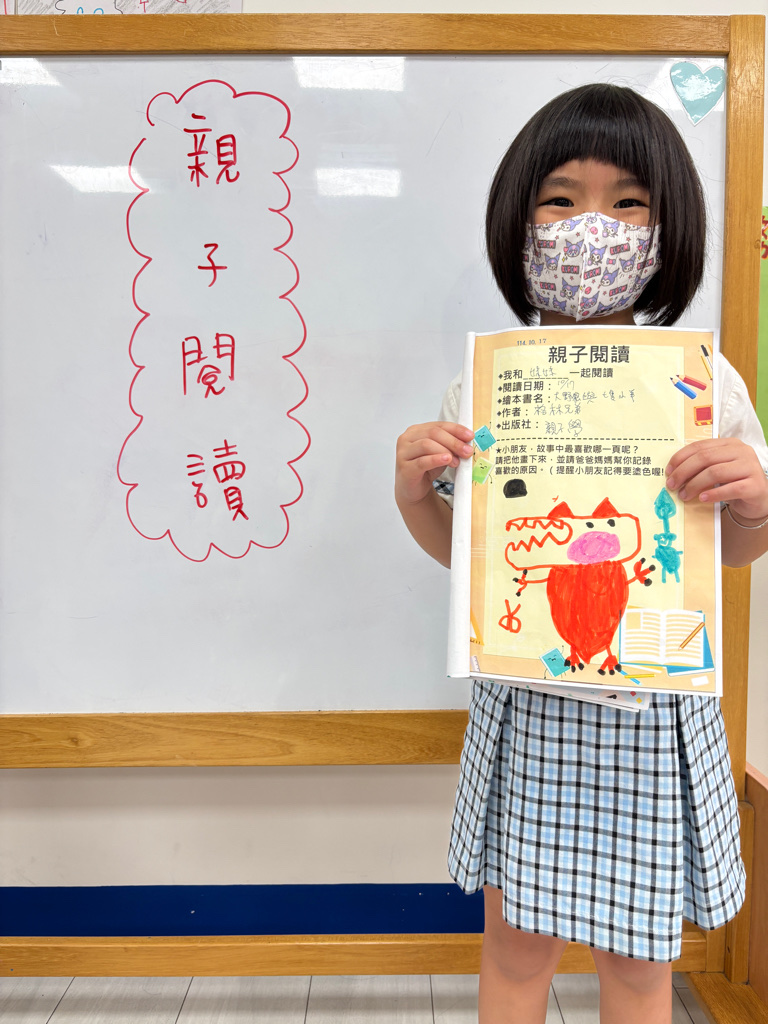 親子閱讀
114.10.17
親子閱讀
◆我和 一起閱讀
◆閱讀日期：10/17
◆繪本書名：大野狼與
◆作者：格林兄弟
◆出版社：親子
★小朋友，故事中最喜歡哪一頁呢？
請把他畫下來，並請爸爸媽媽幫你記錄
喜歡的原因。（提醒小朋友記得要塗色喔!